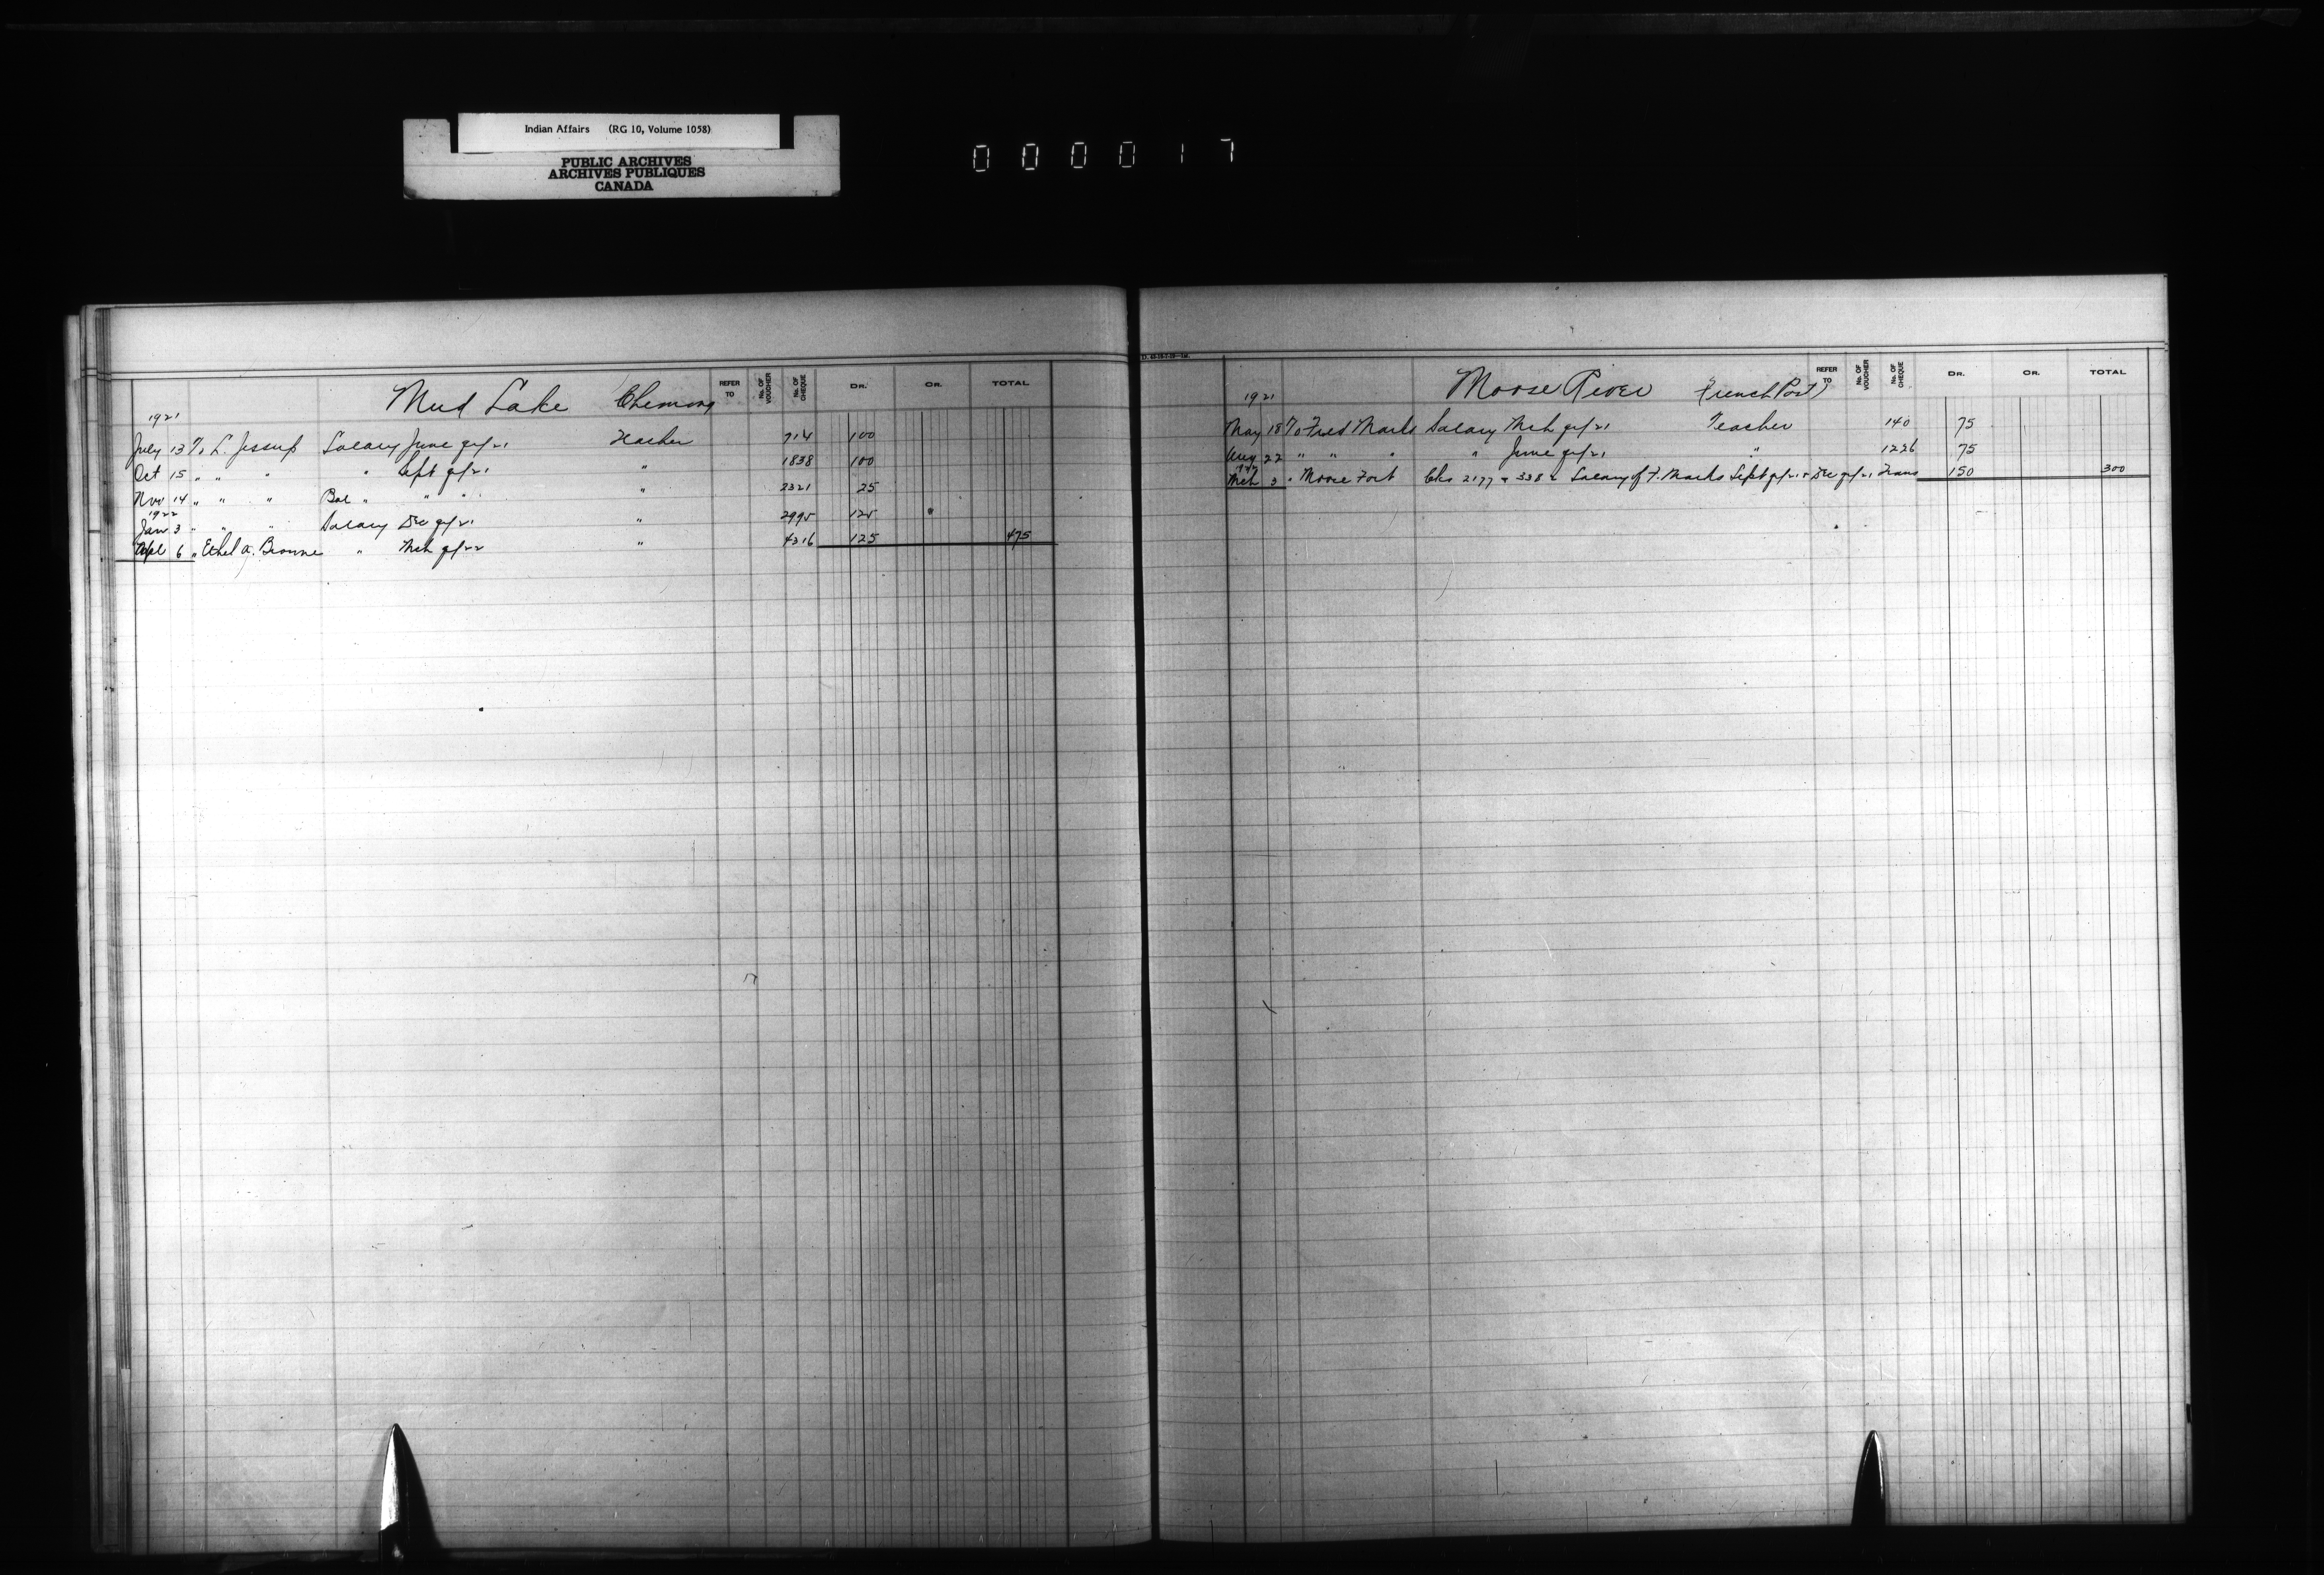 Indian Affairs (RG 10, Volume 1058)
PUBLIC ARCHIVES
ARCHIVES PUBLIQUES
CANADA
000017
Mud Lake Chemong REFER TO No. OF VOUCHER No. OF CHEQUE DR. CR. TOTAL
1921
July 13 To L. Jessup Salary June qr/21 Teacher 714 100
Oct 15 " " " " Sept qr/21 " 1838 100
Nov 14 " " " Bal " " " " 2321 25
1922
Jan 3 " " " Salary Dec qr/21 " 2995 125
Apl 6 " Ethel A. Browne " Mch qr/22 " 4316 125 475
Moose River (French Post) REFER TO No. OF VOUCHER No. OF CHEQUE DR. CR. TOTAL
1921
May 18 To Fred Marks Salary Mch qr/21 Teacher 140 75
Aug 22 " " " " June qr/21 " 1226 75
1922
Mch 3 " Moose Fort Cks 2177 & 3382 Salary of F. Marks Sept qr/21 & Dec qr/21 Trans 150 300